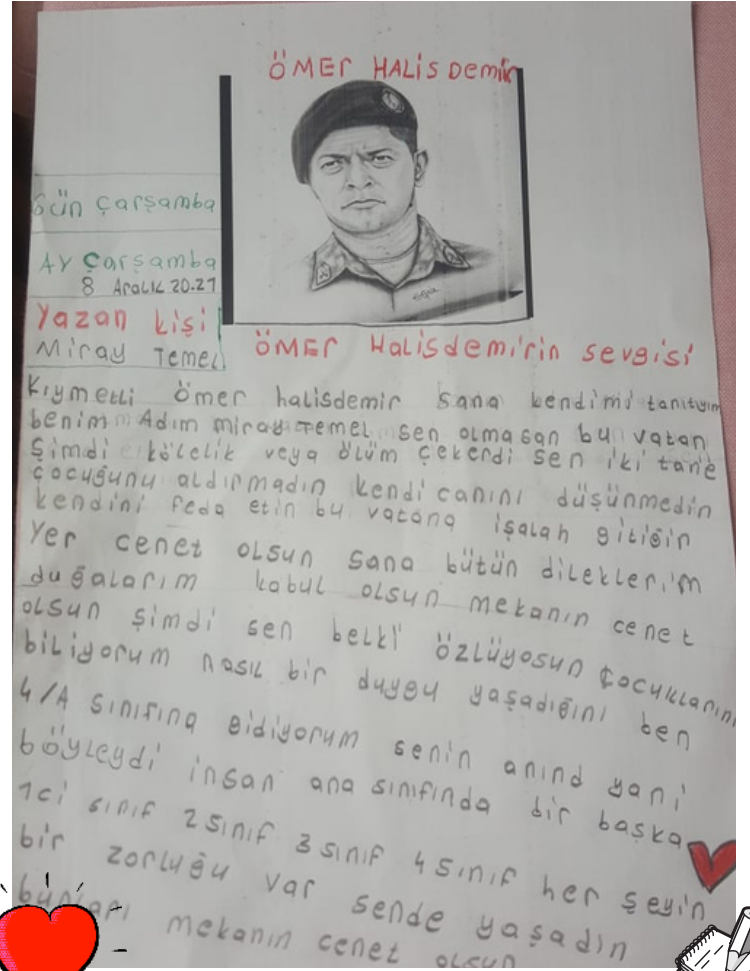 ÖMEr HALİSDemir
Gün Çarşamba
AY Çarşamba
8 Aralık 20.21
Yazan kişi
Miray Temel
ÖMEr Halisdemi'rin sevgisi
Kıymetli Ömer halisdemir sana kendimi tanıtıyım
benim Adım miray Temel sen olmasan bu vatan
Şimdi kölelik veya ölüm çekerdi sen iki tane
çocuğunu aldırmadın kendi canını düşünmedin
kendini feda etin bu vatana işalah gitiğin
Yer cenet olsun sana bütün dileklerim
duğalarım kabul olsun mekanın cenet
olsun şimdi sen belki özlüyosun çocuklarını
biliyorum nasıl bir duygu yaşadığını ben
4/A sınıfına gidiyorum senin anınd yani
böyleydi insan ana sınıfında bir başka
1ci sınıf 2 sınıf 3 sınıf 4 sınıf her şeyin
bir zorluğu var sende yaşadın
bunları mekanın cenet olsun